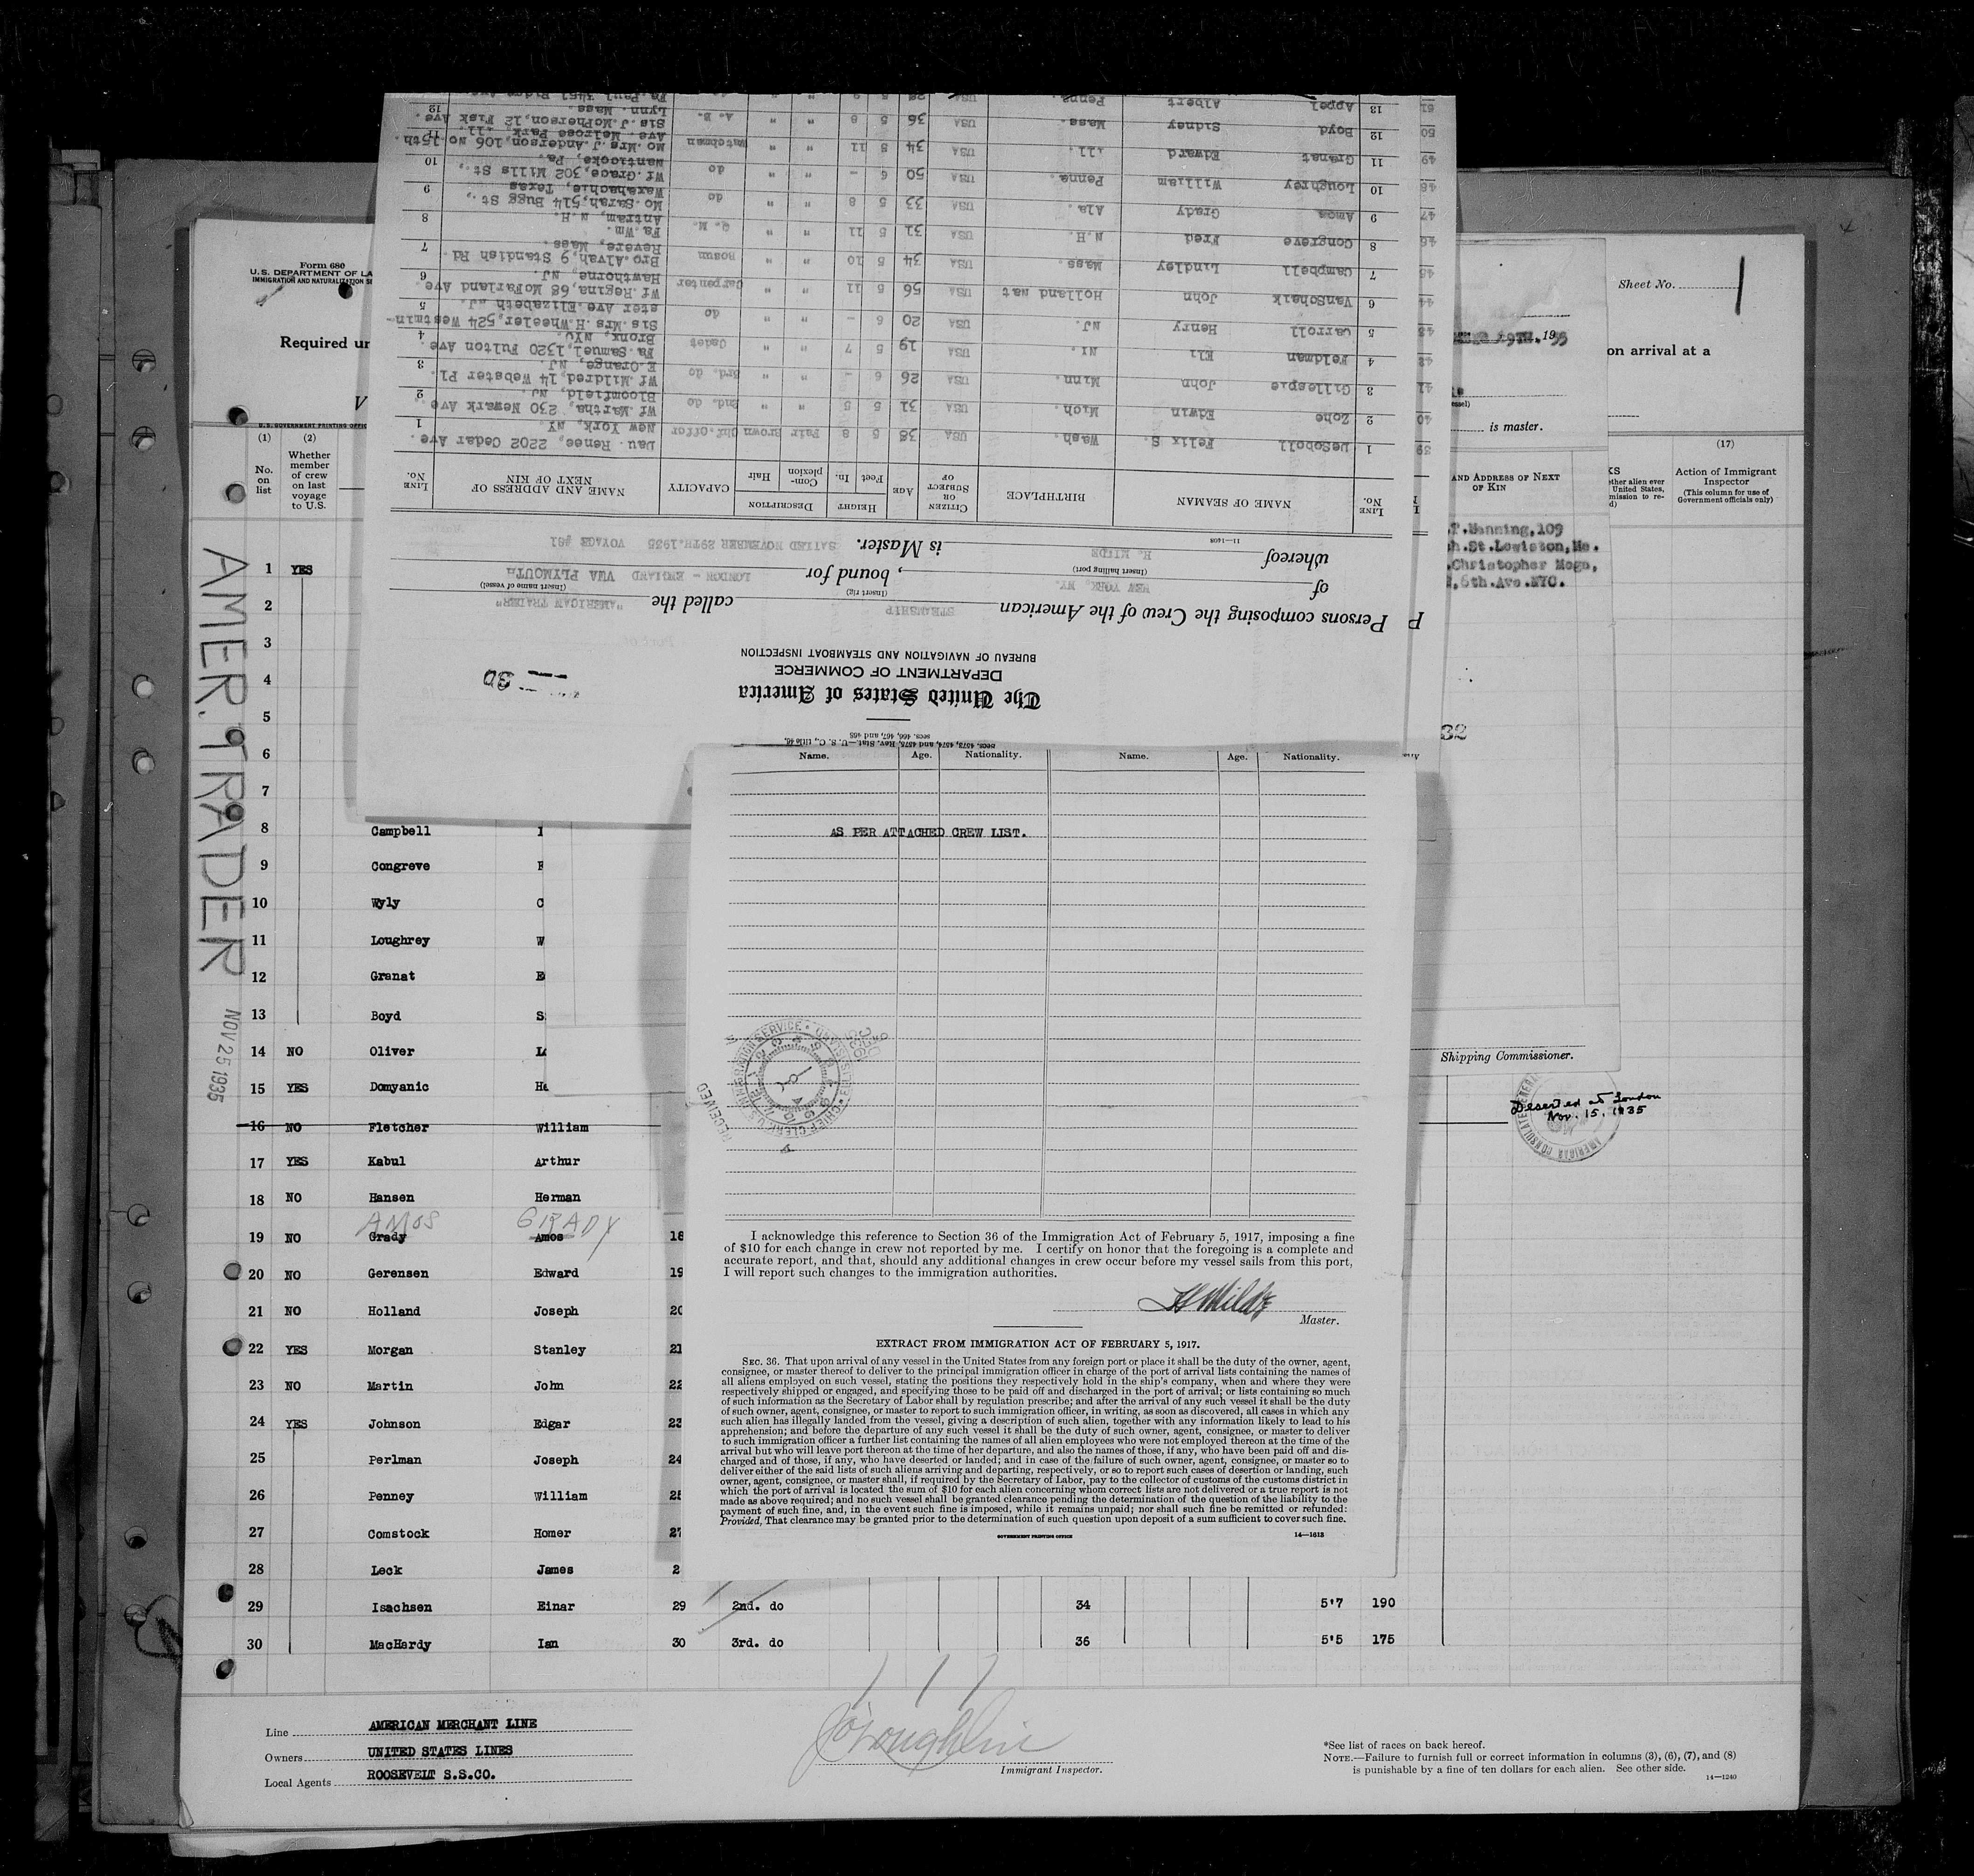 Form 680
U.S. DEPARTMENT OF LA
IMMIGRATION AND NATURALIZATION SE
Required un
V
U.S. GOVERNMENT PRINTING OFFIC
(1)
No.
on
list
(2)
Whether
member
of crew
on last
voyage
to U.S.
AMER. TRADER
NOV 25 1935
1 YES
2
3
4
5
6
7
8 Campbell
9 Congreve
10 Wyly
11 Loughrey
12 Granat
13 Boyd
14 NO Oliver
15 YES Domyanic
16 NO Fletcher William
17 YES Kabul Arthur
18 NO Hansen Herman
AMOS GRADY
19 NO Grady Amos 18
20 NO Gerensen Edward 19
21 NO Holland Joseph 20
22 YES Morgan Stanley 21
23 NO Martin John 22
24 YES Johnson Edgar 23
25 Perlman Joseph 24
26 Penney William 25
27 Comstock Homer 27
28 Leck James 2
29 Isachsen Einar 29 2nd. do 34 5'7 190
30 MacHardy Ian 30 3rd. do 36 5'5 175
Line AMERICAN MERCHANT LINE
Owners UNITED STATES LINES
Local Agents ROOSEVELT S.S.CO.
Immigrant Inspector.
*See list of races on back hereof.
NOTE.—Failure to furnish full or correct information in columns (3), (6), (7), and (8)
is punishable by a fine of ten dollars for each alien. See other side.
14—1240
secs. 4573, 4574, and 4575, Rev. Stat.—U. S. C., title 46,
secs. 466, 467, and 468
The United States of America
DEPARTMENT OF COMMERCE
BUREAU OF NAVIGATION AND STEAMBOAT INSPECTION
Persons composing the Crew of the American STEAMSHIP called the "AMERICAN TRADER"
(Insert rig) (Insert name of vessel)
of NEW YORK, NY. , bound for LONDON - ENGLAND VIA PLYMOUTH
(Insert hailing port)
whereof H. MILDE is Master. SAILED NOVEMBER 29TH.1935 VOYAGE #81
11—1408
LINE No.
NAME OF SEAMAN
BIRTHPLACE
CITIZEN OR SUBJECT OF
AGE
HEIGHT
Feet In.
DESCRIPTION
Complexion Hair
CAPACITY
NAME AND ADDRESS OF NEXT OF KIN
LINE No.
1 DeSoboll Felix S. Wash. USA 38 5 8 Fair Brown Chf.offcr Dau. Renee, 2202 Cedar Ave. New York, NY. 1
2 Zohe Edwin Mich. USA 31 5 5 " " 2nd. do Wf.Martha, 230 Newark Ave. Bloomfield, NJ. 2
3 Gillespie John Minn. USA 26 6 - " " 3rd. do Wf.Mildred,14 Webster Pl. E.Orange, NJ. 3
4 Feldman Eli NY. USA 19 5 7 " " Cadet Fa.Samuel,1320 Fulton Ave. Bronx, NYC. 4
5 Carroll Henry NJ. USA 20 6 - " " do Sis.Mrs.H.Wheeler,524 Westminster Ave.Elizabeth NJ. 5
6 VanSchaik John Holland nat USA 56 5 11 " " Carpenter Wf.Regina,68 McFarland Ave. Hawthorne, NJ. 6
7 Campbell Lindley Mass. USA 34 5 10 " " Bosun Bro.Alvah,9 Standish Rd Revere, Mass. 7
8 Congreve Fred N.H. USA 31 5 11 " " Q. M. Fa.Wm. Antram, N.H. 8
9 Amos Grady Ala. USA 33 5 8 " " do Mo.Sarah,514 Bugg St., Waxahachie, Texas 9
10 Loughrey William Penna. USA 50 6 - " " do Wf.Grace,302 Mills St., Nanticoke, Pa. 10
11 Granat Edward Ill. USA 34 5 11 " " Watchman Mo.Mrs.J.Anderson,106 No 15th. Ave. Melrose Park, Ill. 11
12 Boyd Sidney Mass. USA 36 5 8 " " A. B. Sis.J.McPherson,12 Fisk Ave. Lynn. Mass. 12
13 Appel Albert Penna. USA
39
40
41
42
43
44
45
46
47
48
49
50
51
Name. Age. Nationality. Name. Age. Nationality.
AS PER ATTACHED CREW LIST.
RECEIVED
I acknowledge this reference to Section 36 of the Immigration Act of February 5, 1917, imposing a fine
of $10 for each change in crew not reported by me. I certify on honor that the foregoing is a complete and
accurate report, and that, should any additional changes in crew occur before my vessel sails from this port,
I will report such changes to the immigration authorities.
H Milde
Master.
EXTRACT FROM IMMIGRATION ACT OF FEBRUARY 5, 1917.
SEC. 36. That upon arrival of any vessel in the United States from any foreign port or place it shall be the duty of the owner, agent,
consignee, or master thereof to deliver to the principal immigration officer in charge of the port of arrival lists containing the names of
all aliens employed on such vessel, stating the positions they respectively hold in the ship's company, when and where they were
respectively shipped or engaged, and specifying those to be paid off and discharged in the port of arrival; or lists containing so much
of such information as the Secretary of Labor shall by regulation prescribe; and after the arrival of any such vessel it shall be the duty
of such owner, agent, consignee, or master to report to such immigration officer, in writing, as soon as discovered, all cases in which any
such alien has illegally landed from the vessel, giving a description of such alien, together with any information likely to lead to his
apprehension; and before the departure of any such vessel it shall be the duty of such owner, agent, consignee, or master to deliver
to such immigration officer a further list containing the names of all alien employees who were not employed thereon at the time of the
arrival but who will leave port thereon at the time of her departure, and also the names of those, if any, who have been paid off and dis-
charged and of those, if any, who have deserted or landed; and in case of the failure of such owner, agent, consignee, or master so to
deliver either of the said lists of such aliens arriving and departing, respectively, or so to report such cases of desertion or landing, such
owner, agent, consignee, or master shall, if required by the Secretary of Labor, pay to the collector of customs of the customs district in
which the port of arrival is located the sum of $10 for each alien concerning whom correct lists are not delivered or a true report is not
made as above required; and no such vessel shall be granted clearance pending the determination of the question of the liability to the
payment of such fine, and, in the event such fine is imposed, while it remains unpaid; nor shall such fine be remitted or refunded:
Provided, That clearance may be granted prior to the determination of such question upon deposit of a sum sufficient to cover such fine.
GOVERNMENT PRINTING OFFICE
14—1613
Sheet No. 1
29TH. 1935
on arrival at a
is master.
AND ADDRESS OF NEXT
OF KIN
.T.Manning,109
h.St.Lewiston,Me.
.Christopher Mogn,
,6th.Ave.NYC.
32
(17)
Action of Immigrant
Inspector
(This column for use of
Government officials only)
Shipping Commissioner.
Deserted at London
Nov. 15, 1935